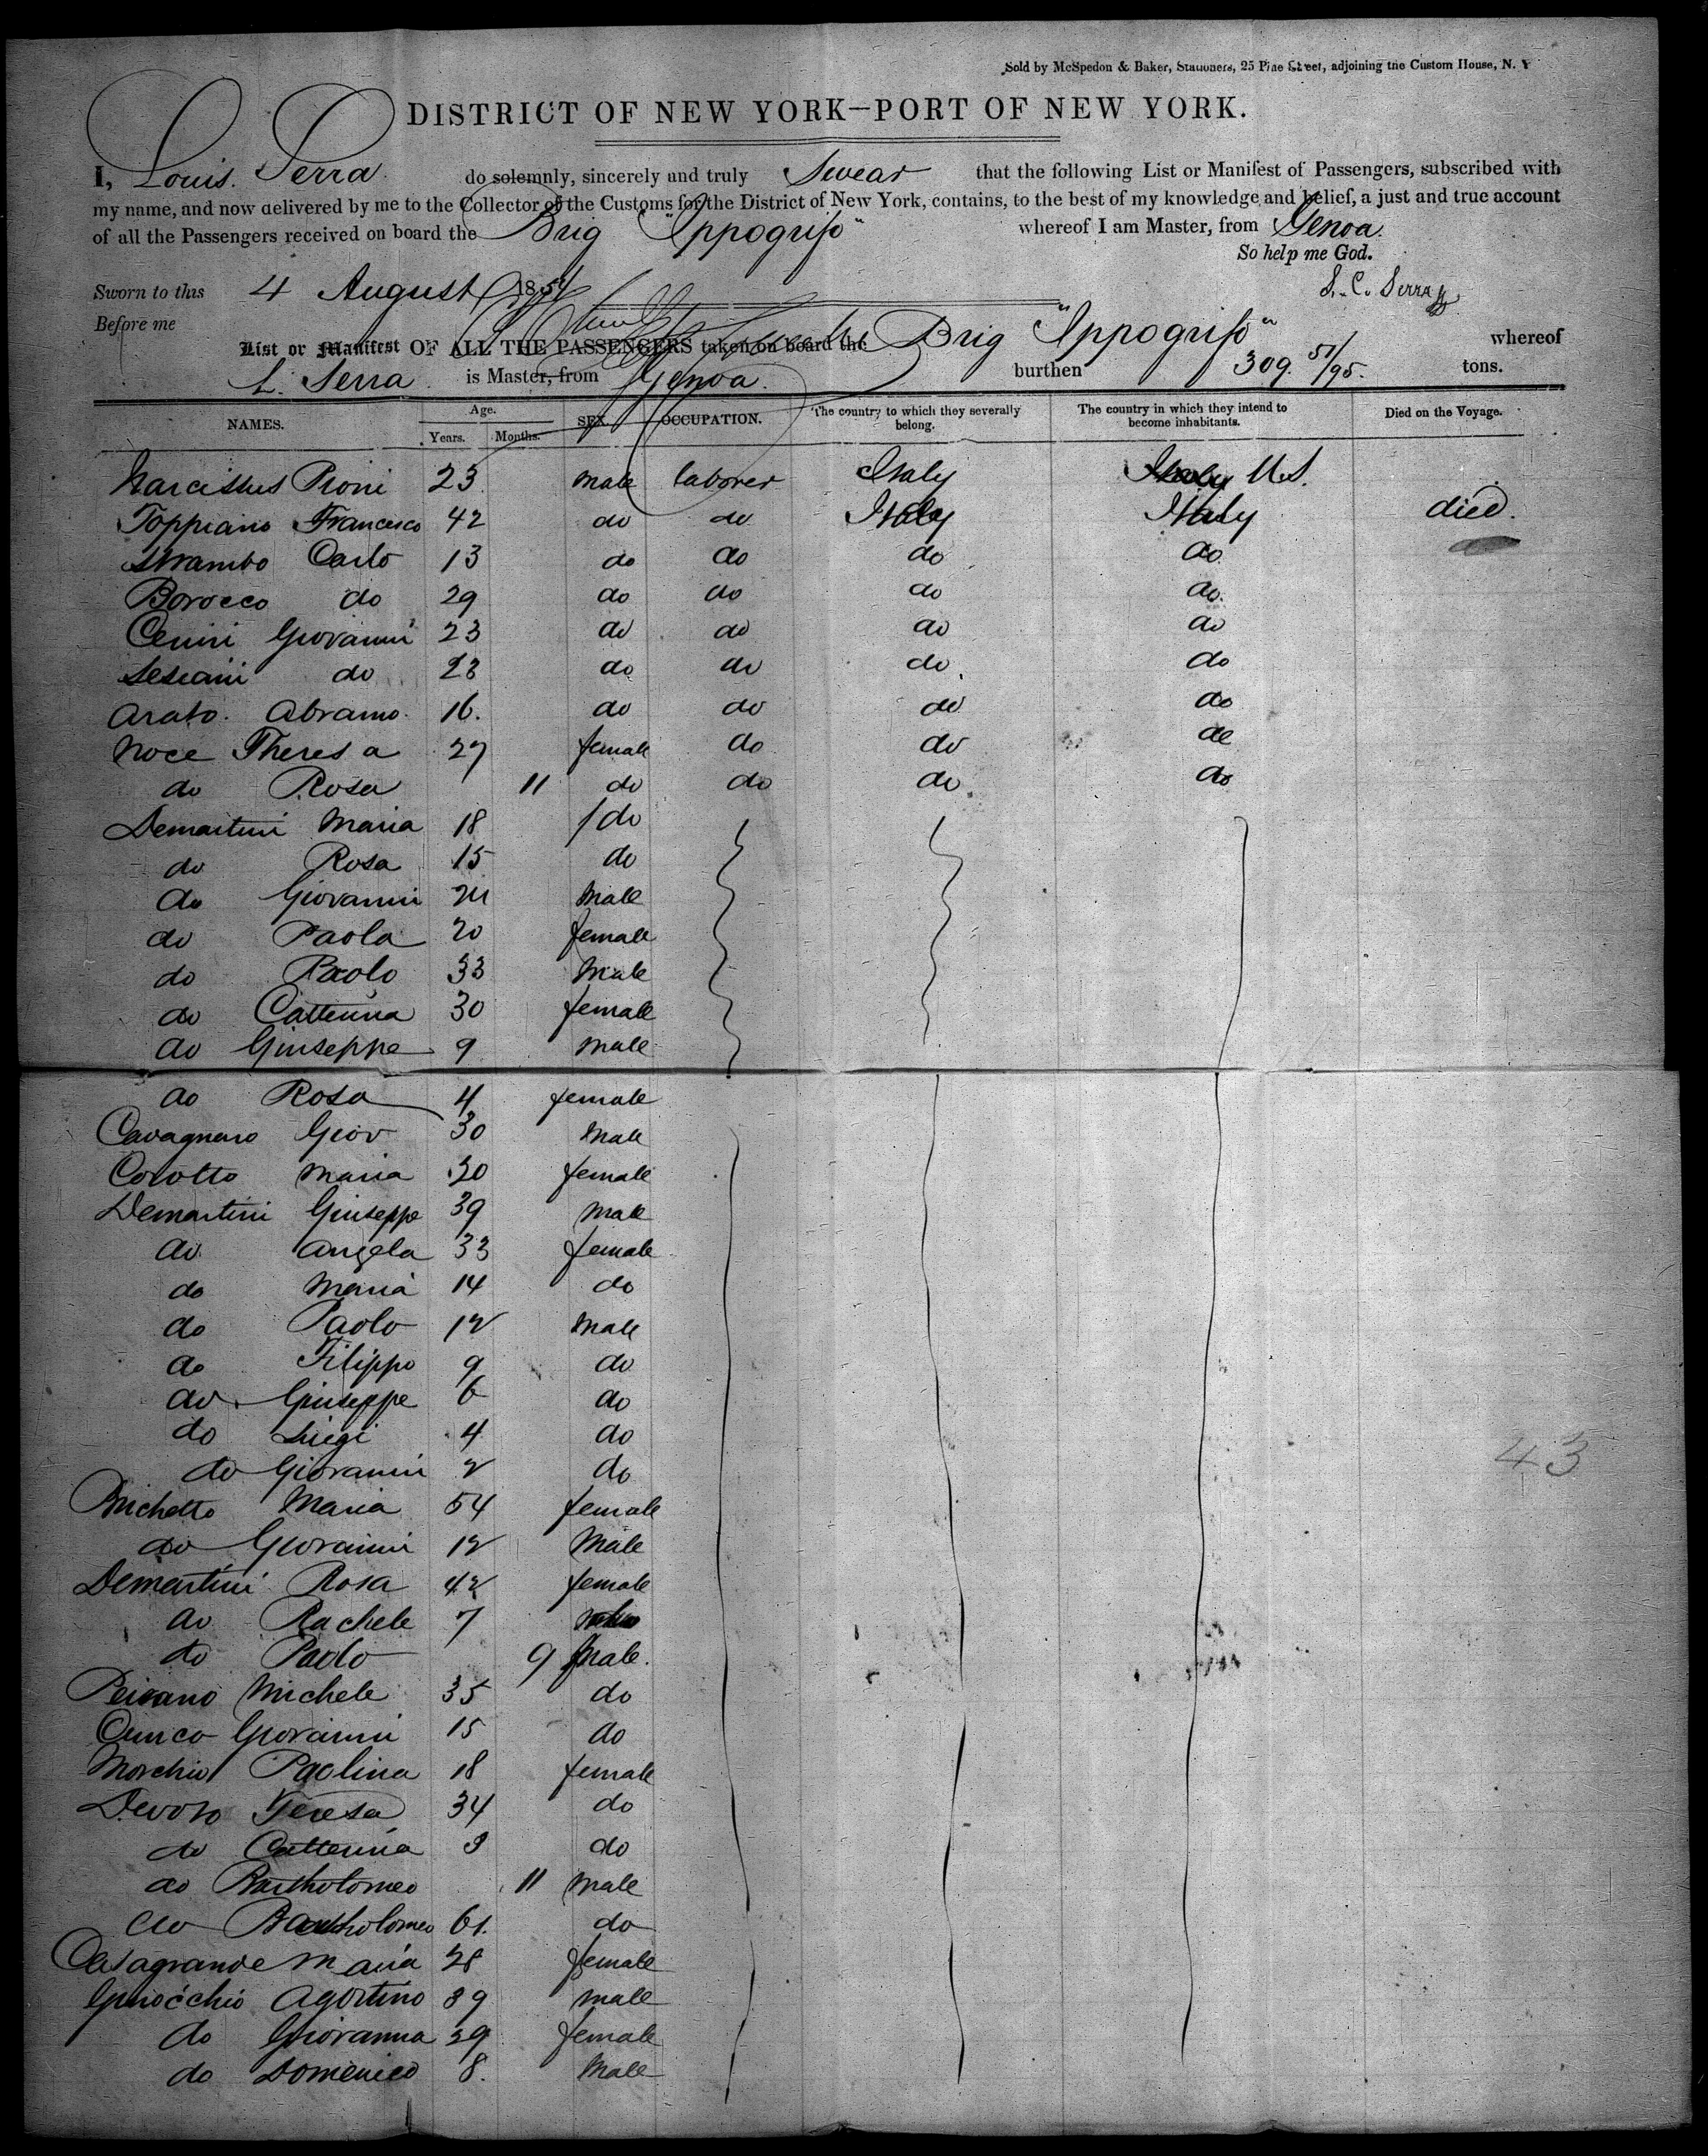 Sold by McSpedon & Baker, Stationers, 25 Pine Street, adjoining the Custom House, N. Y
DISTRICT OF NEW YORK—PORT OF NEW YORK.
I, Louis Serra do solemnly, sincerely and truly Swear that the following List or Manifest of Passengers, subscribed with
my name, and now delivered by me to the Collector of the Customs for the District of New York, contains, to the best of my knowledge and belief, a just and true account
of all the Passengers received on board the Brig "Ippogrifo" whereof I am Master, from Genoa.
So help me God.
Sworn to this 4 August 1854 L. C. Serra
Before me
List or Manifest OF ALL THE PASSENGERS taken on board the Brig "Ippogrifo" whereof
L. Serra is Master, from Genoa. burthen 309. 51/95. tons.
NAMES. Age. Years. Months. SEX. OCCUPATION. The country to which they severally belong. The country in which they intend to become inhabitants. Died on the Voyage.
Narcissus Pioni 23 male laborer Italy U.S.
Toppiano Francesco 42 do do Italy Italy died.
Strambo Carlo 13 do do do do
Borocco do 29 do do do do
Cenini Giovanni 23 do do do do
do 23 do do do do
Arato. Abramo. 16. do do do do
Noce Theresa 27 female do do do
do Rosa 11 do do do do
Demartini Maria 18 do
do Rosa 15 do
do Giovanni 24 Male
do Paola 20 female
do Paolo 33 Male
do Catterina 30 female
do Giuseppe 9 male
do Rosa 4 female
Cavagnaro Giov 30 Male
Corotto Maria 30 female
Demartini Giuseppe 39 Male
do Angela 33 female
do Maria 14 do
do Paolo 12 Male
do Filippo 9 do
do Giuseppe 6 do
do Luigi 4 do
43
do Giovanni 2 do
Brichetto Maria 54 female
do Giovanni 12 Male
Demartini Rosa 42 female
do Rachele 7
do Paolo 9 Male.
Peirano Michele 35 do
Cunco Giovanni 15 do
Morchio Paolina 18 female
Devoto Teresa 34 do
do Catterina 3 do
do Bartholomeo 11 Male
do Bartholomeo 61. do
Casagrande Maria 28 female
Ginocchio Agostino 39 male
do Giovanna 29 female
do Domenico 8. Male